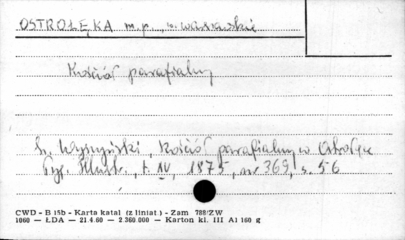 OSTROŁĘKA m. p., w. warszawskie
Kościół parafialny
h. Wyszyński, Kościół parafialny w Ostrołęce
Tyg. Illustr., t. IV, 1875, nr 369, s. 56
CWD - B 15b - Karta katal (z liniat) - Zam 788/ZW
1060 — ŁDA — 21.4.60 — 2.360.000 — Karton kl. III A1 160 g